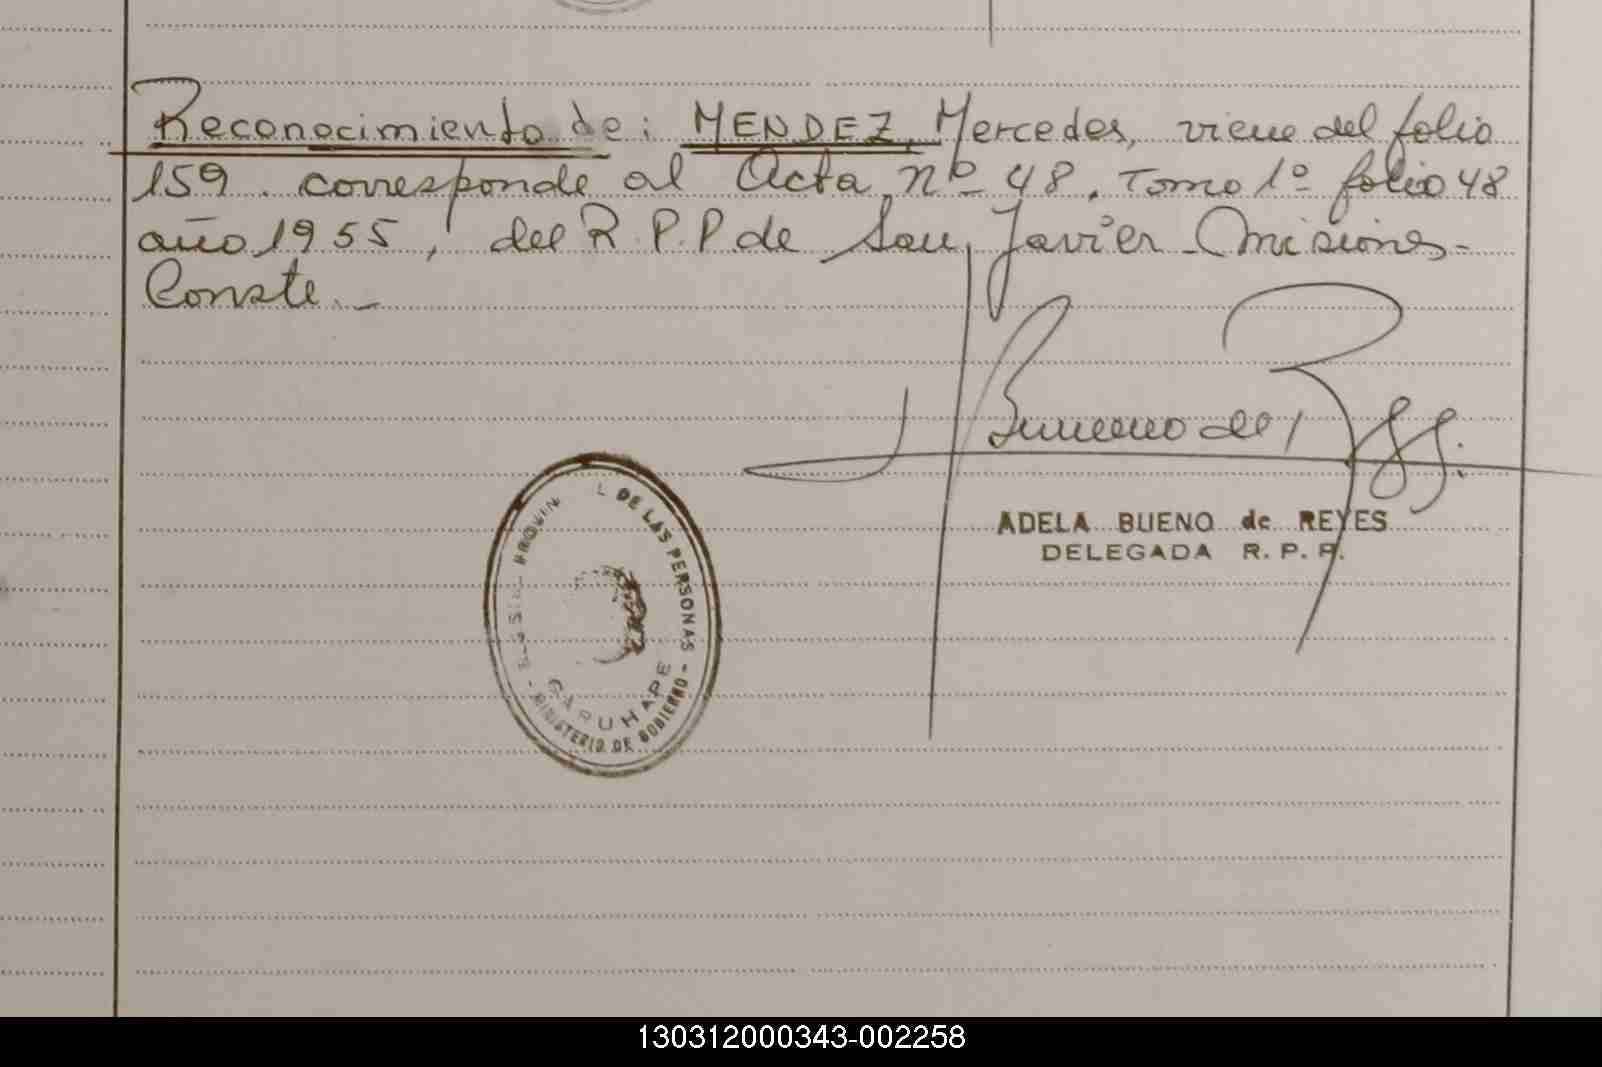 Reconocimiento de: MENDEZ, Mercedes, viene del folio
159. corresponde al Acta nº 48. Tomo 1º folio 48
año 1955, del R.P.P de San Javier - Misiones-
Conste.-
Bueno de R
ADELA BUENO de REYES
DELEGADA R. P. P.
L DE LAS PERSONAS - MINISTERIO DE GOBIERNO -
GARUHAPE
130312000343-002258